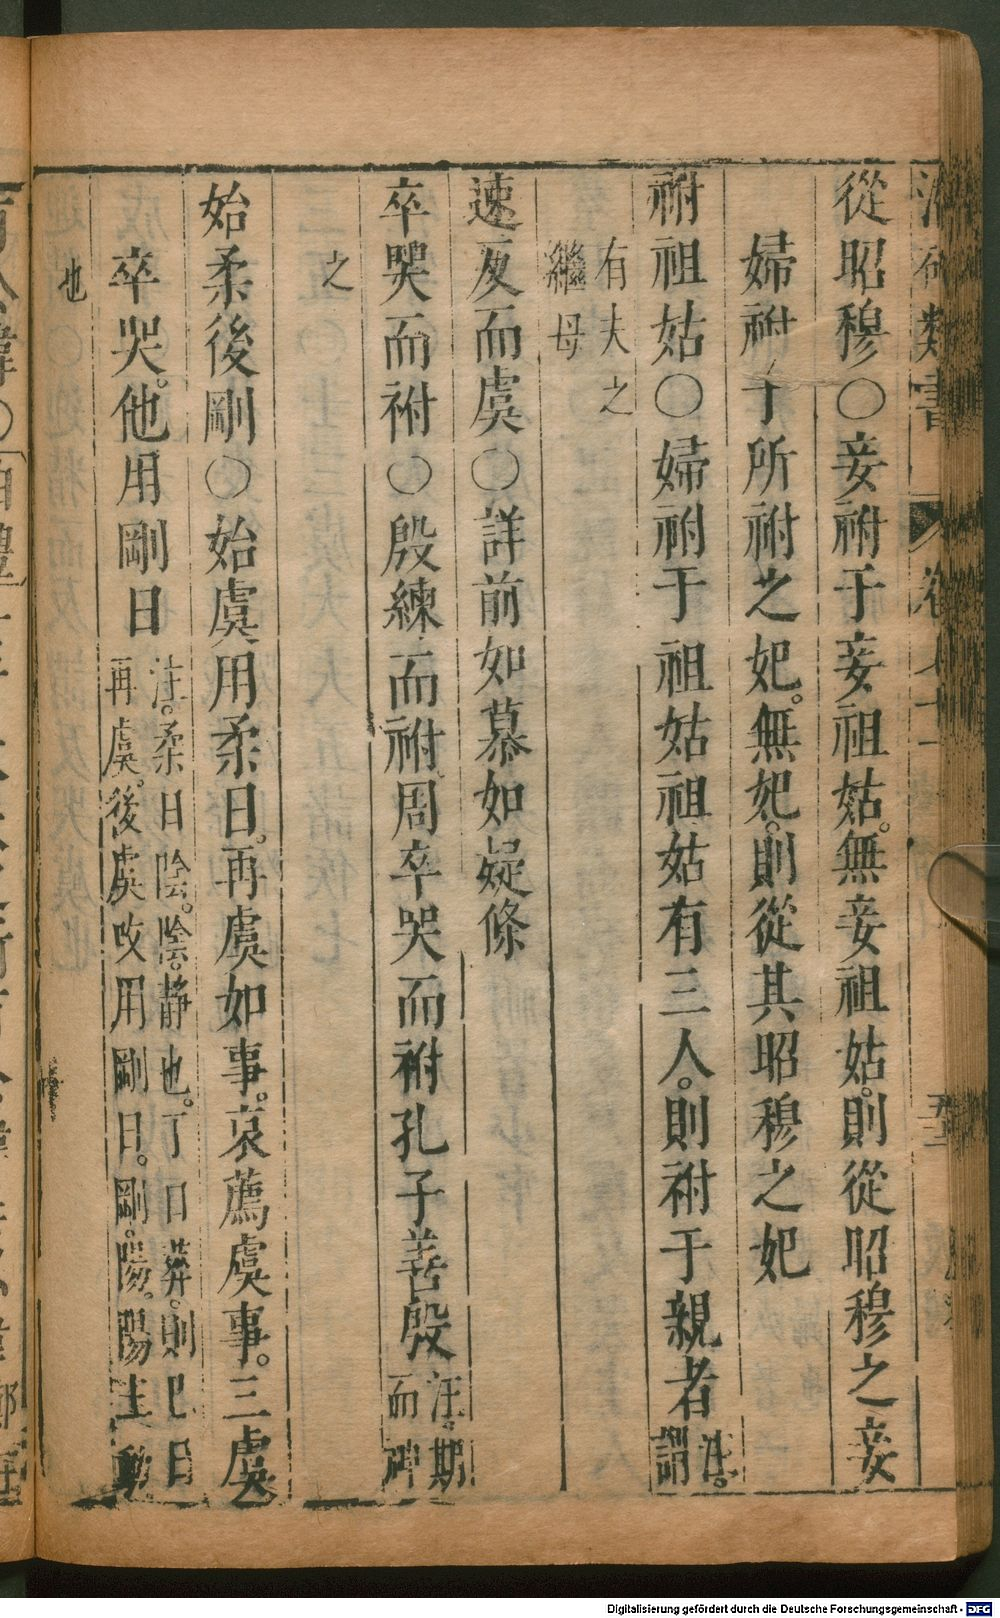 從昭穆○妾祔于妾祖姑。無妾祖姑。則從昭穆之妾
婦祔于所祔之妃。無妃。則從其昭穆之妃
祔祖姑○婦祔于祖姑祖姑有三人。則祔于親者注。謂
有夫之
繼母
速反而虞○詳前如慕如疑條
卒哭而祔○殷練而祔周卒哭而祔孔子善殷注。期而神
之
始柔後剛○始虞用柔日。再虞如事。哀薦虞事。三虞
卒哭。他用剛日注。柔日陰。陰。静也。丁日葬。則巳日
再虞。後虞改用剛日。剛。陽。陽主動
也
Digitalisierung gefördert durch die Deutsche Forschungsgemeinschaft - DFG